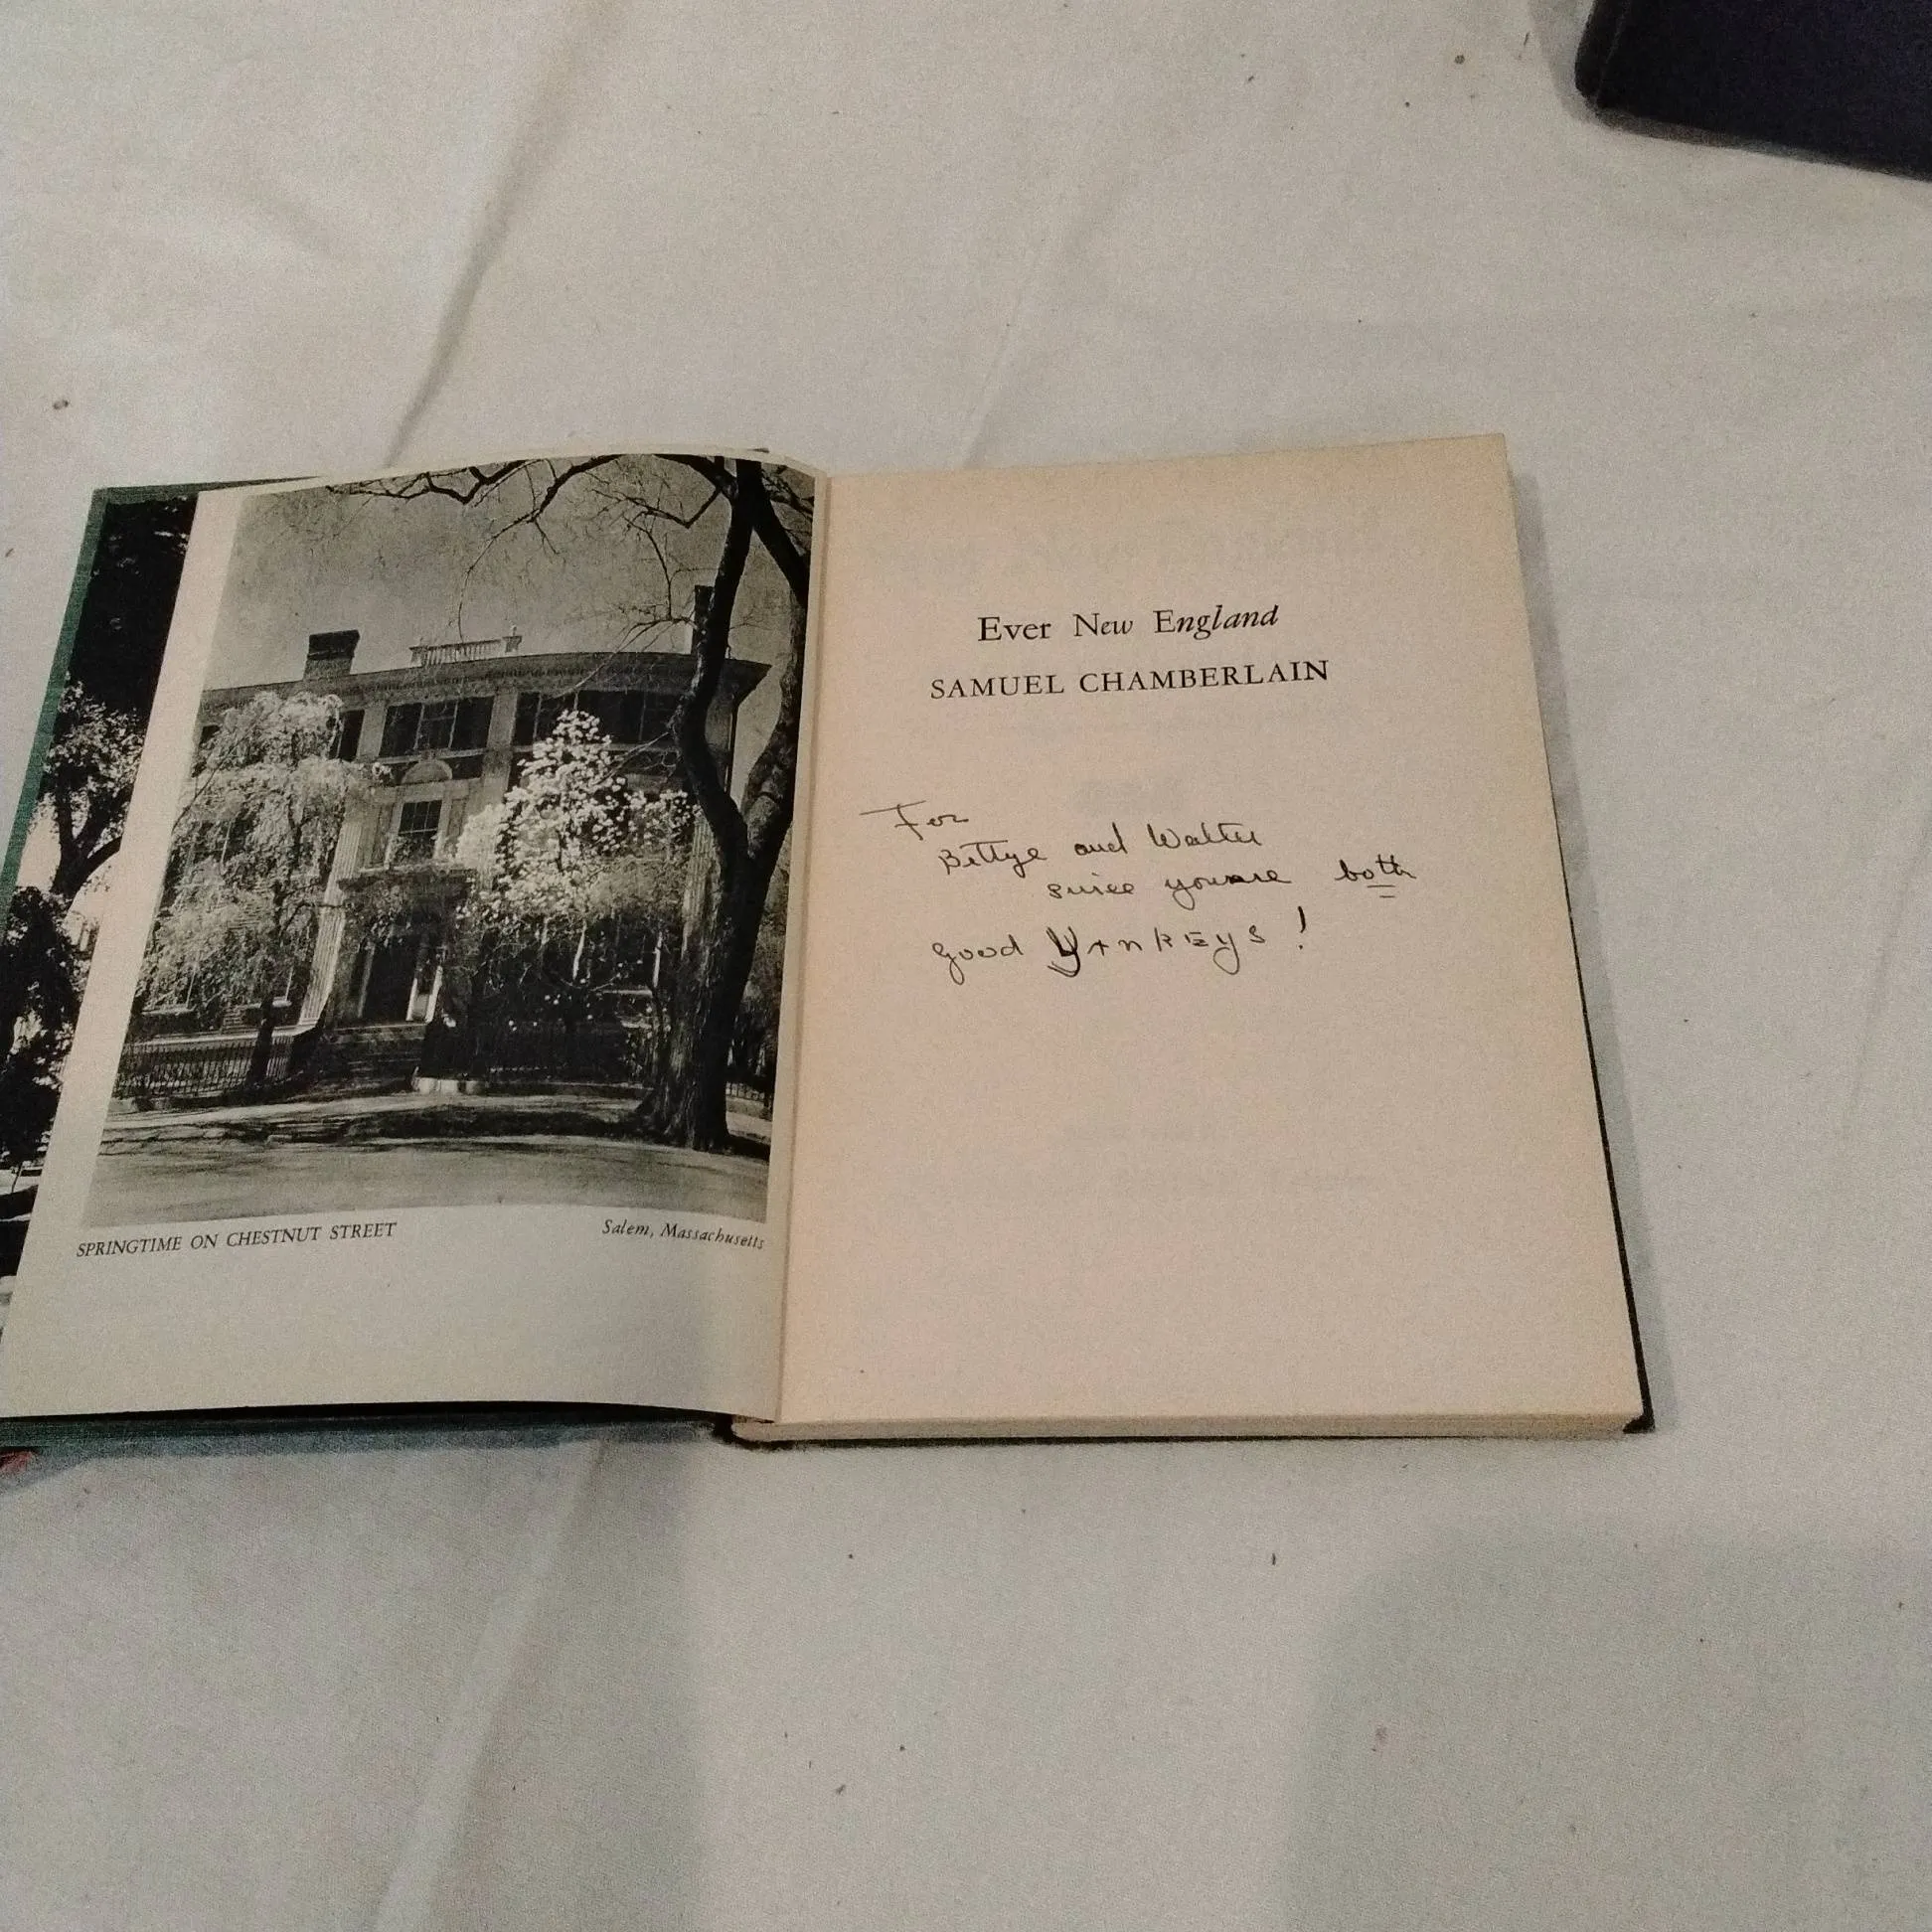 SPRINGTIME ON CHESTNUT STREET
Salem, Massachusetts
Ever New England
SAMUEL CHAMBERLAIN
For
Bettye and Walter
since you are both
good YAnKEys!